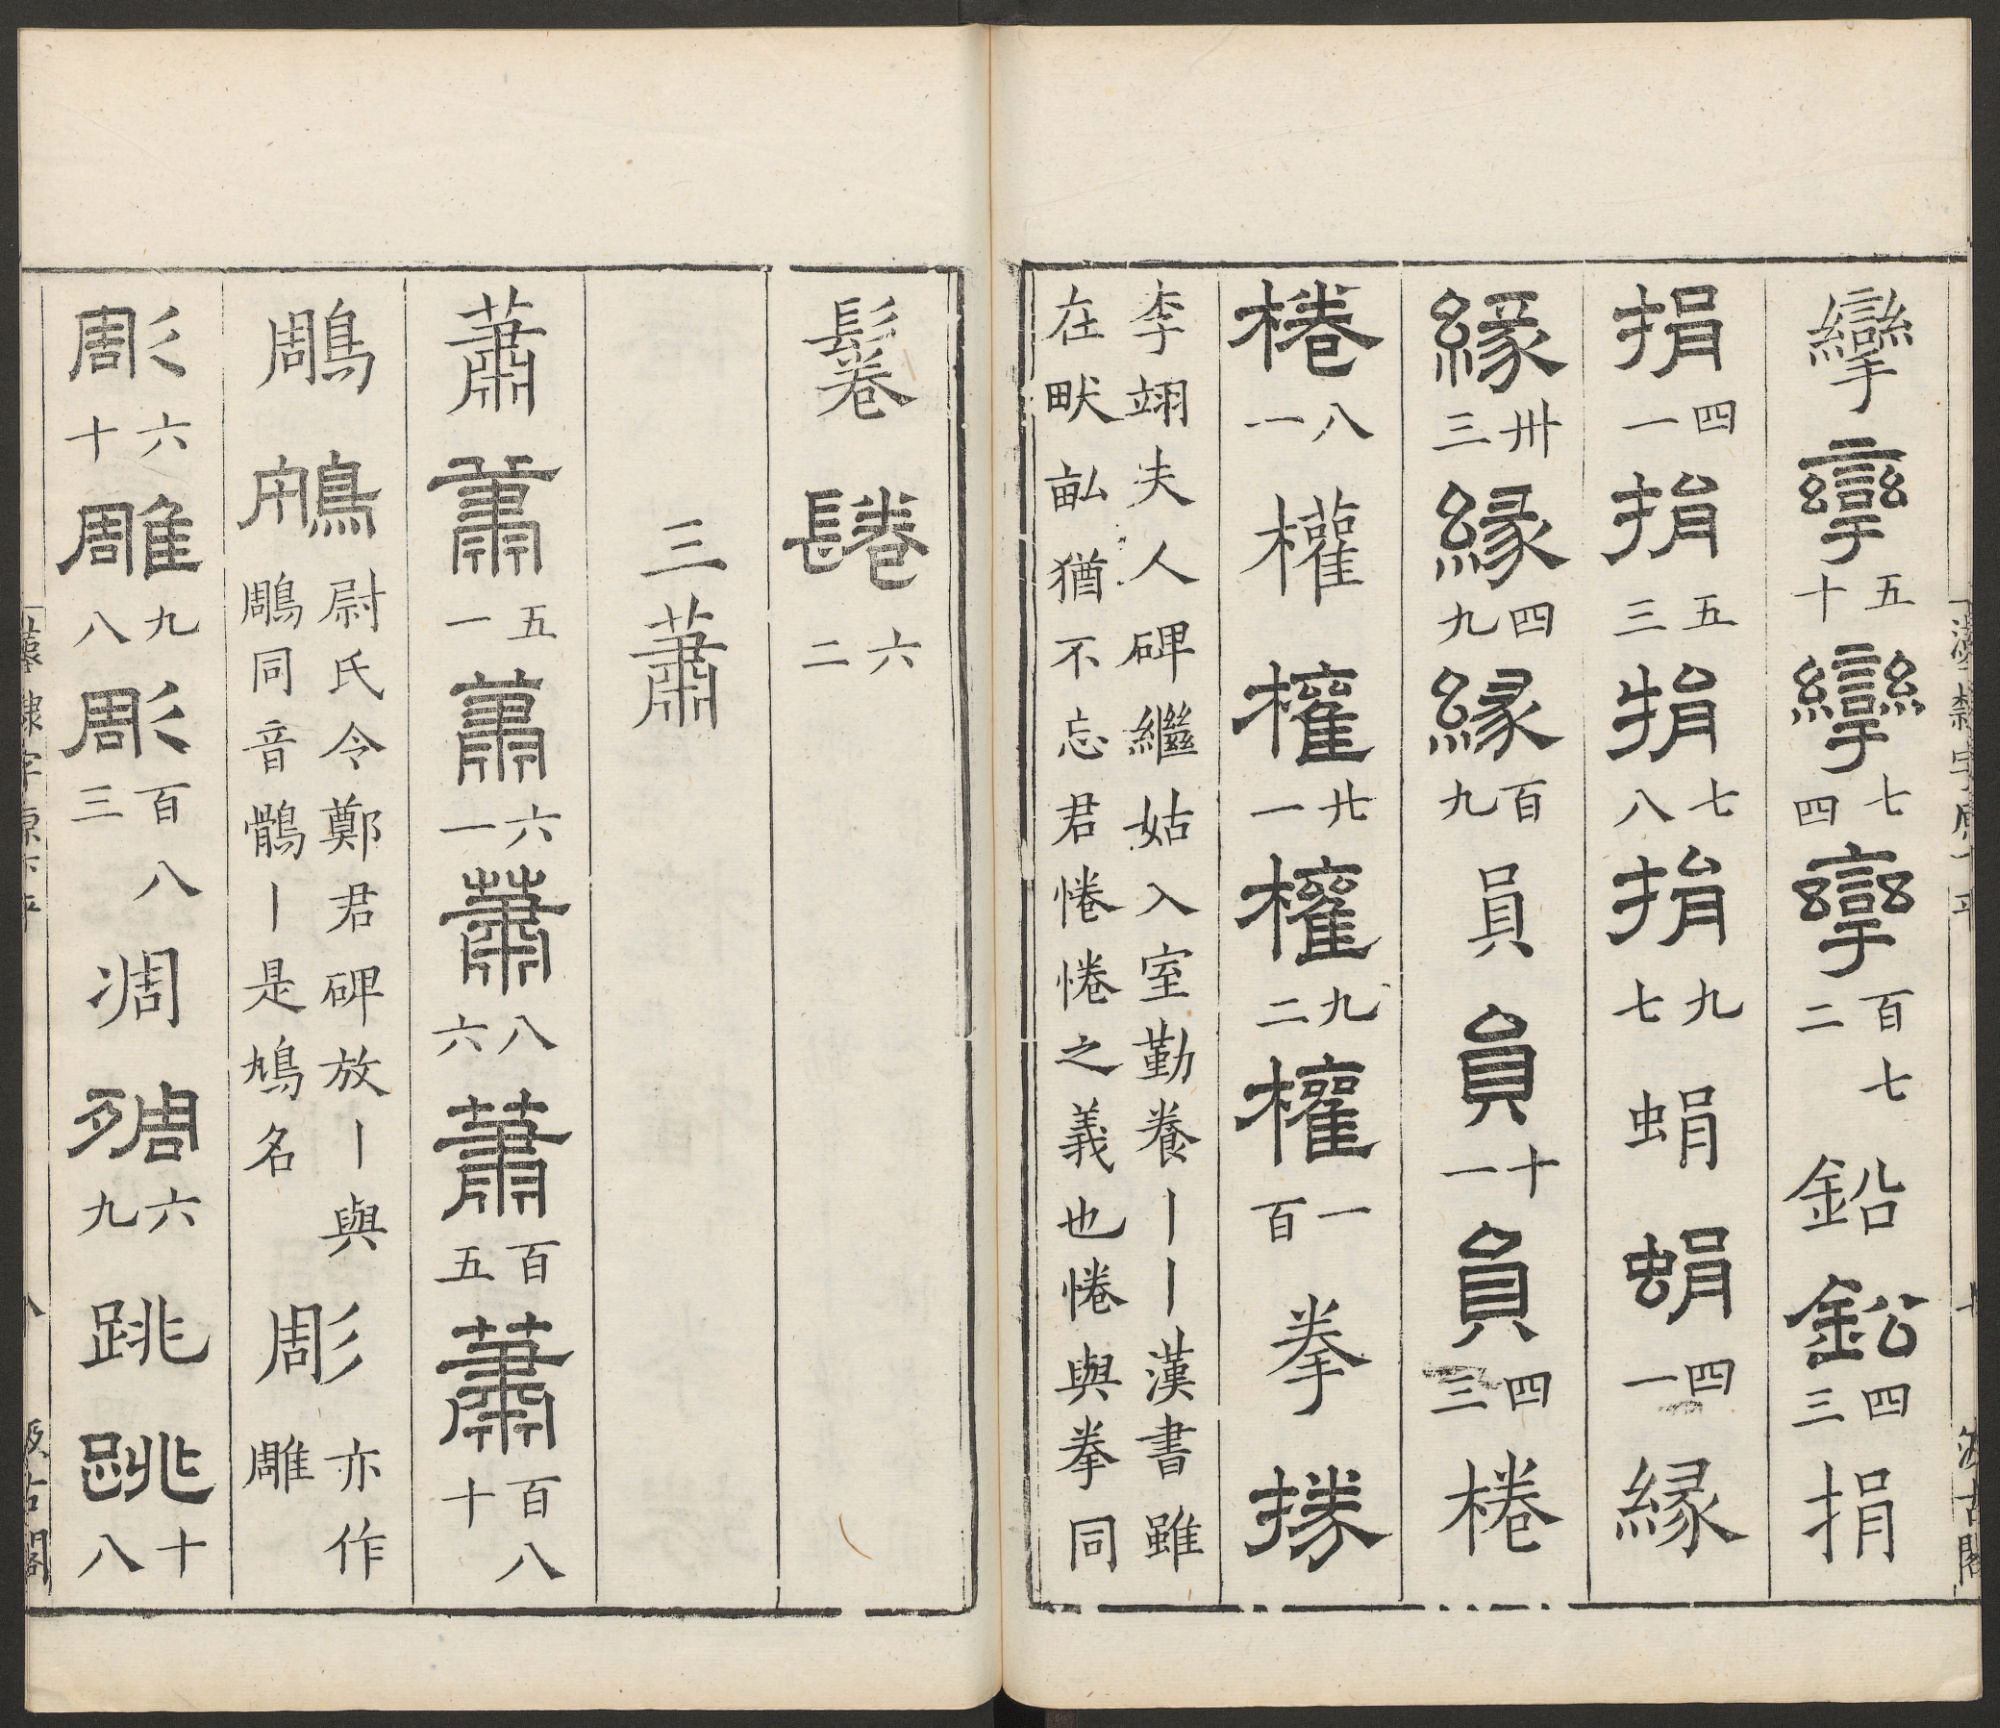 攣攣五十攣七四攣百七二鉛鉛四三捐
捐四一捐五三捐七八捐九七蜎蜎四一緣
緣卅三緣四九緣百九員員十一員四三棬
棬八一權權廿一權九二權一百拳搼
李翊夫人碑繼姑入室勤養丨丨漢書雖
在畎畝猶不忘君惓惓之義也惓與拳同
鬈鬈六二
三蕭
蕭蕭五一蕭六一蕭八六蕭百五蕭百八十
鵰鵰尉氏令鄭君碑放丨與
鵰同音鶻丨是鳩名
彫亦作
雕
彫六十雕九八彫百八三凋殦六九跳跳十八
汲古閣